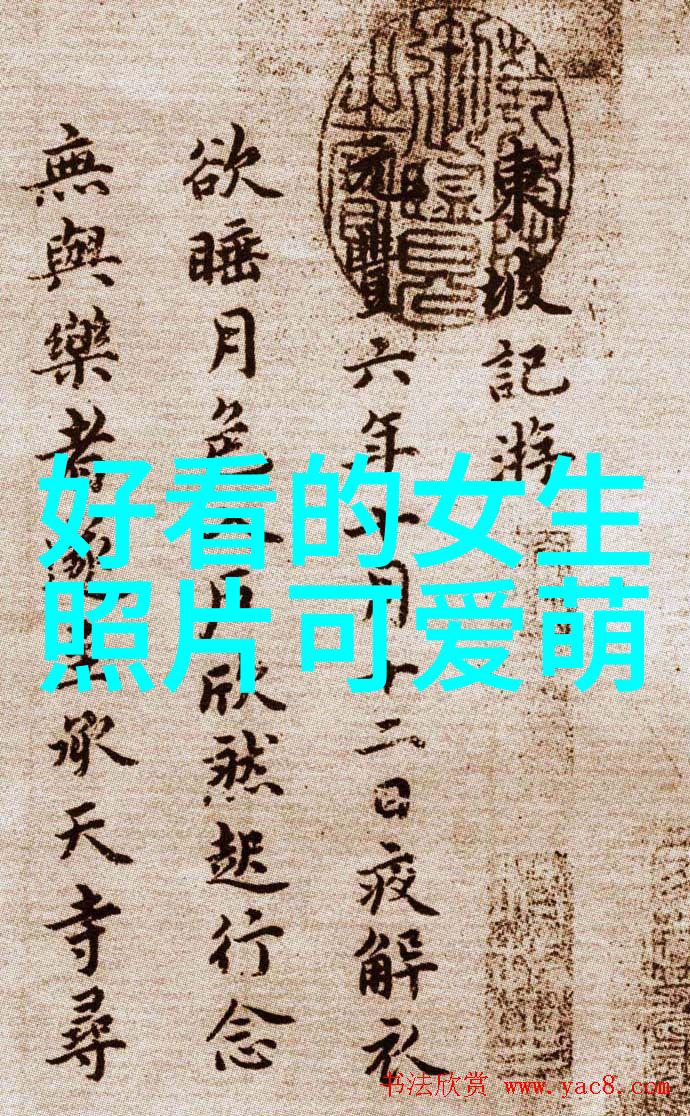 東坡記游
元豐六年十月十二日夜解衣
欲睡月色入户欣然起行念
無與樂者遂至承天寺尋
好看的女生
照片可爱萌
书法欣赏 www.yac8.com